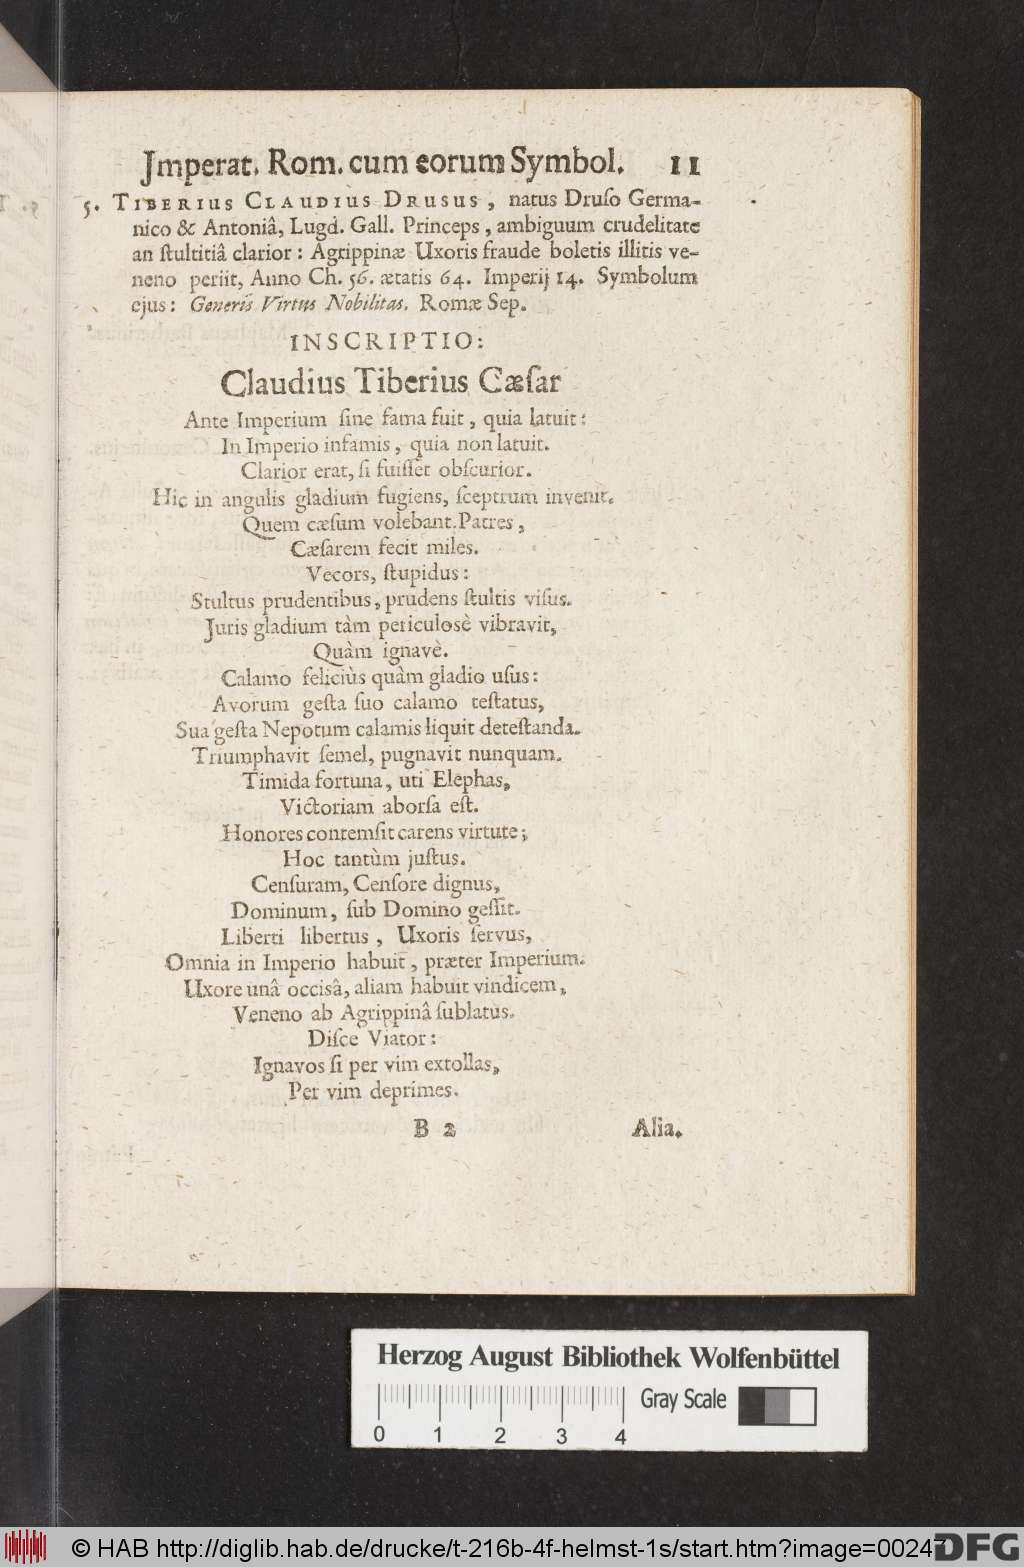 Jmperat. Rom. cum eorum Symbol. 11
5. TIBERIUS CLAUDIUS DRUSUS, natus Druſo Germa-
nico & Antoniâ, Lugd. Gall. Princeps, ambiguum crudelitate
an ſtultitiâ clarior: Agrippinæ Uxoris fraude boletis illitis ve-
neno periit, Anno Ch. 56. ætatis 64. Imperij 14. Symbolum
ejus: Generis Virtus Nobilitas. Romæ Sep.
INSCRIPTIO:
Claudius Tiberius Cæſar
Ante Imperium ſine fama fuit, quia latuit:
In Imperio infamis, quia non latuit.
Clarior erat, ſi fuiſſet obſcurior.
Hic in angulis gladium fugiens, ſceptrum invenit.
Quem cæſum volebant Patres,
Cæſarem fecit miles.
Vecors, ſtupidus:
Stultus prudentibus, prudens ſtultis viſus.
Juris gladium tàm periculosè vibravit,
Quàm ignavè.
Calamo feliciùs quàm gladio uſus:
Avorum geſta ſuo calamo teſtatus,
Sua geſta Nepotum calamis liquit deteſtanda.
Triumphavit ſemel, pugnavit nunquam.
Timida fortuna, uti Elephas,
Victoriam aborſa eſt.
Honores contemſit carens virtute;
Hoc tantùm juſtus.
Cenſuram, Cenſore dignus,
Dominum, ſub Domino geſſit.
Liberti libertus, Uxoris ſervus,
Omnia in Imperio habuit, præter Imperium.
Uxore unâ occisâ, aliam habuit vindicem,
Veneno ab Agrippinâ ſublatus.
Diſce Viator:
Ignavos ſi per vim extollas,
Per vim deprimes.
B 2 Alia.
Herzog August Bibliothek Wolfenbüttel
Gray Scale
0 1 2 3 4
© HAB http://diglib.hab.de/drucke/t-216b-4f-helmst-1s/start.htm?image=00247
DFG